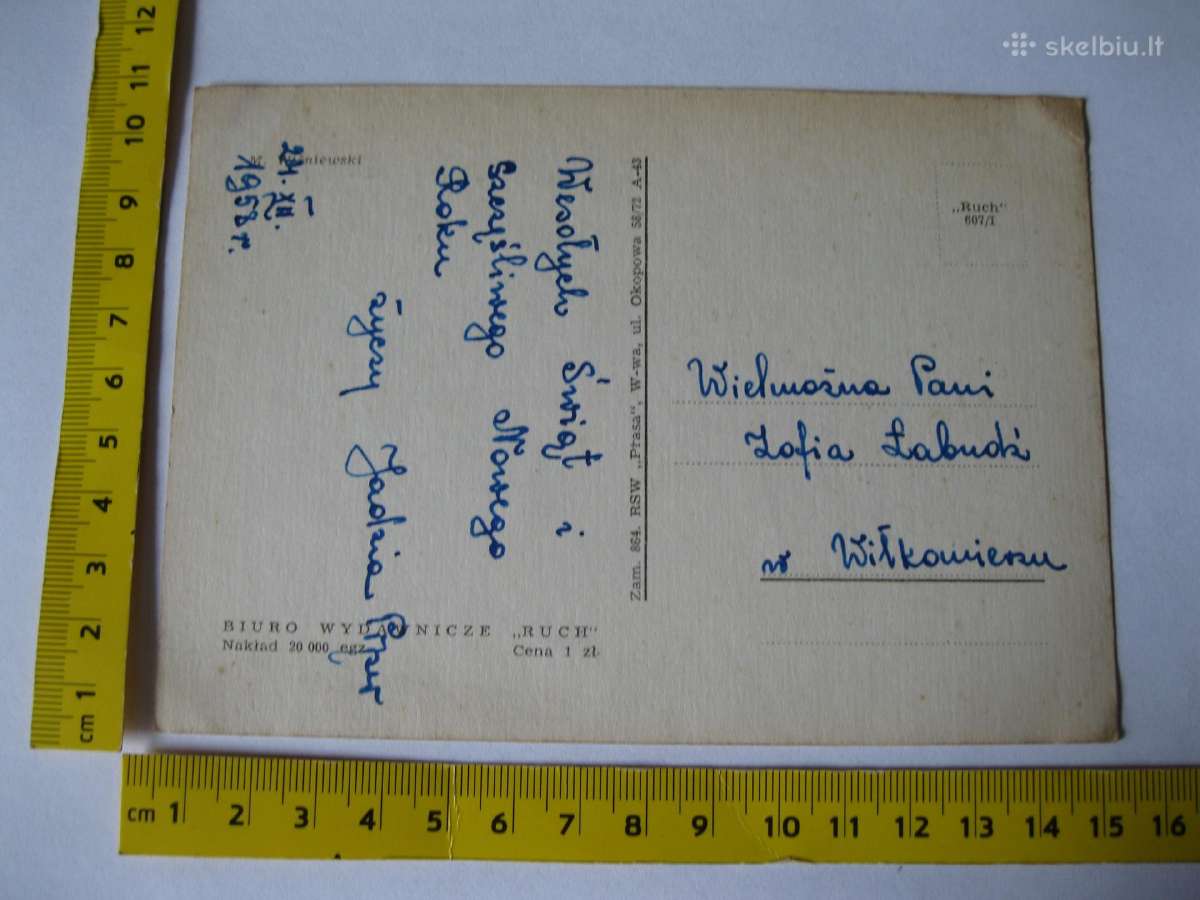 skelbiu.lt
Wesołych Świąt i
szczęśliwego Nowego
Roku
życzy Jadzia
24. XII.
1958 r.
BIURO WYDAWNICZE „RUCH”
Nakład 20 000 egz.
Cena 1 zł
Zam. 864. RSW „Prasa”, W-wa, ul. Okopowa 58/72 A-43
„Ruch”
607/I
Wielmożna Pani
Zofia Łabudź
w Wiłkomierzu
cm 1 2 3 4 5 6 7 8 9 10 11 12
cm 1 2 3 4 5 6 7 8 9 10 11 12 13 14 15 16